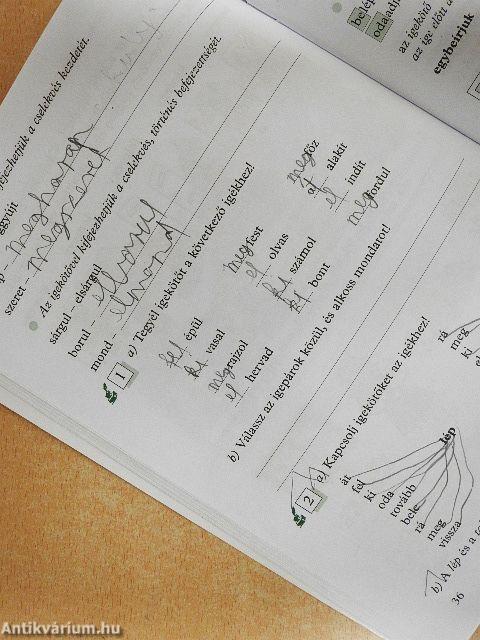 fejezhetjük a cselekvés kezdetét.
együtt
megharap
szeret – megszeret
Az igekötővel kifejezhetjük a cselekvés, történés befejezettségét.
sárgul – elsárgul
borul – elborul
mond – elmond
1 a) Tegyél igekötőt a következő igékhez!
fel épül megfest megfőz
ki vasal el olvas át alakít
megrajzol ki számol el indít
el hervad ki bont megfordul
b) Válassz az igepárok közül, és alkoss mondatot!
2 a) Kapcsolj igekötőket az igékhez!
át
fel
ki
oda
tovább
bele
rá
meg
vissza
lép
rá
meg
ki
b) A lép és a
36
belép
odaadj
az igekötő
az ige előtt
egybeírjuk
Antikvárium.hu